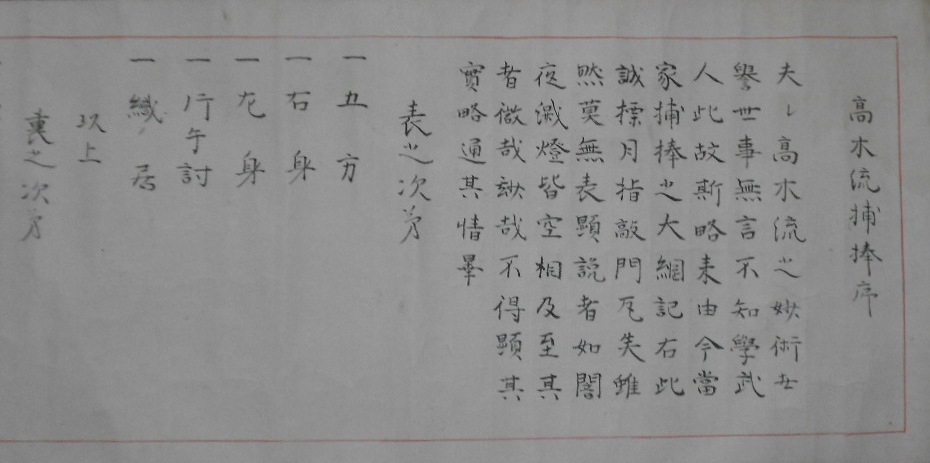 高木流捕捧序
夫〻高木流之妙術世
譽世事無言不知學武
人此故斯略来由今當
家捕捧之大綱記右此
誠標月指敲門瓦矢雖
然莫無表顕説者如闇
夜滅燈皆空相及至其
者微哉哉不得顕其
實略通其情畢
表之次第
一 五方
一 右身
一 左身
一 片午討
一 織居
以上
裏之次第